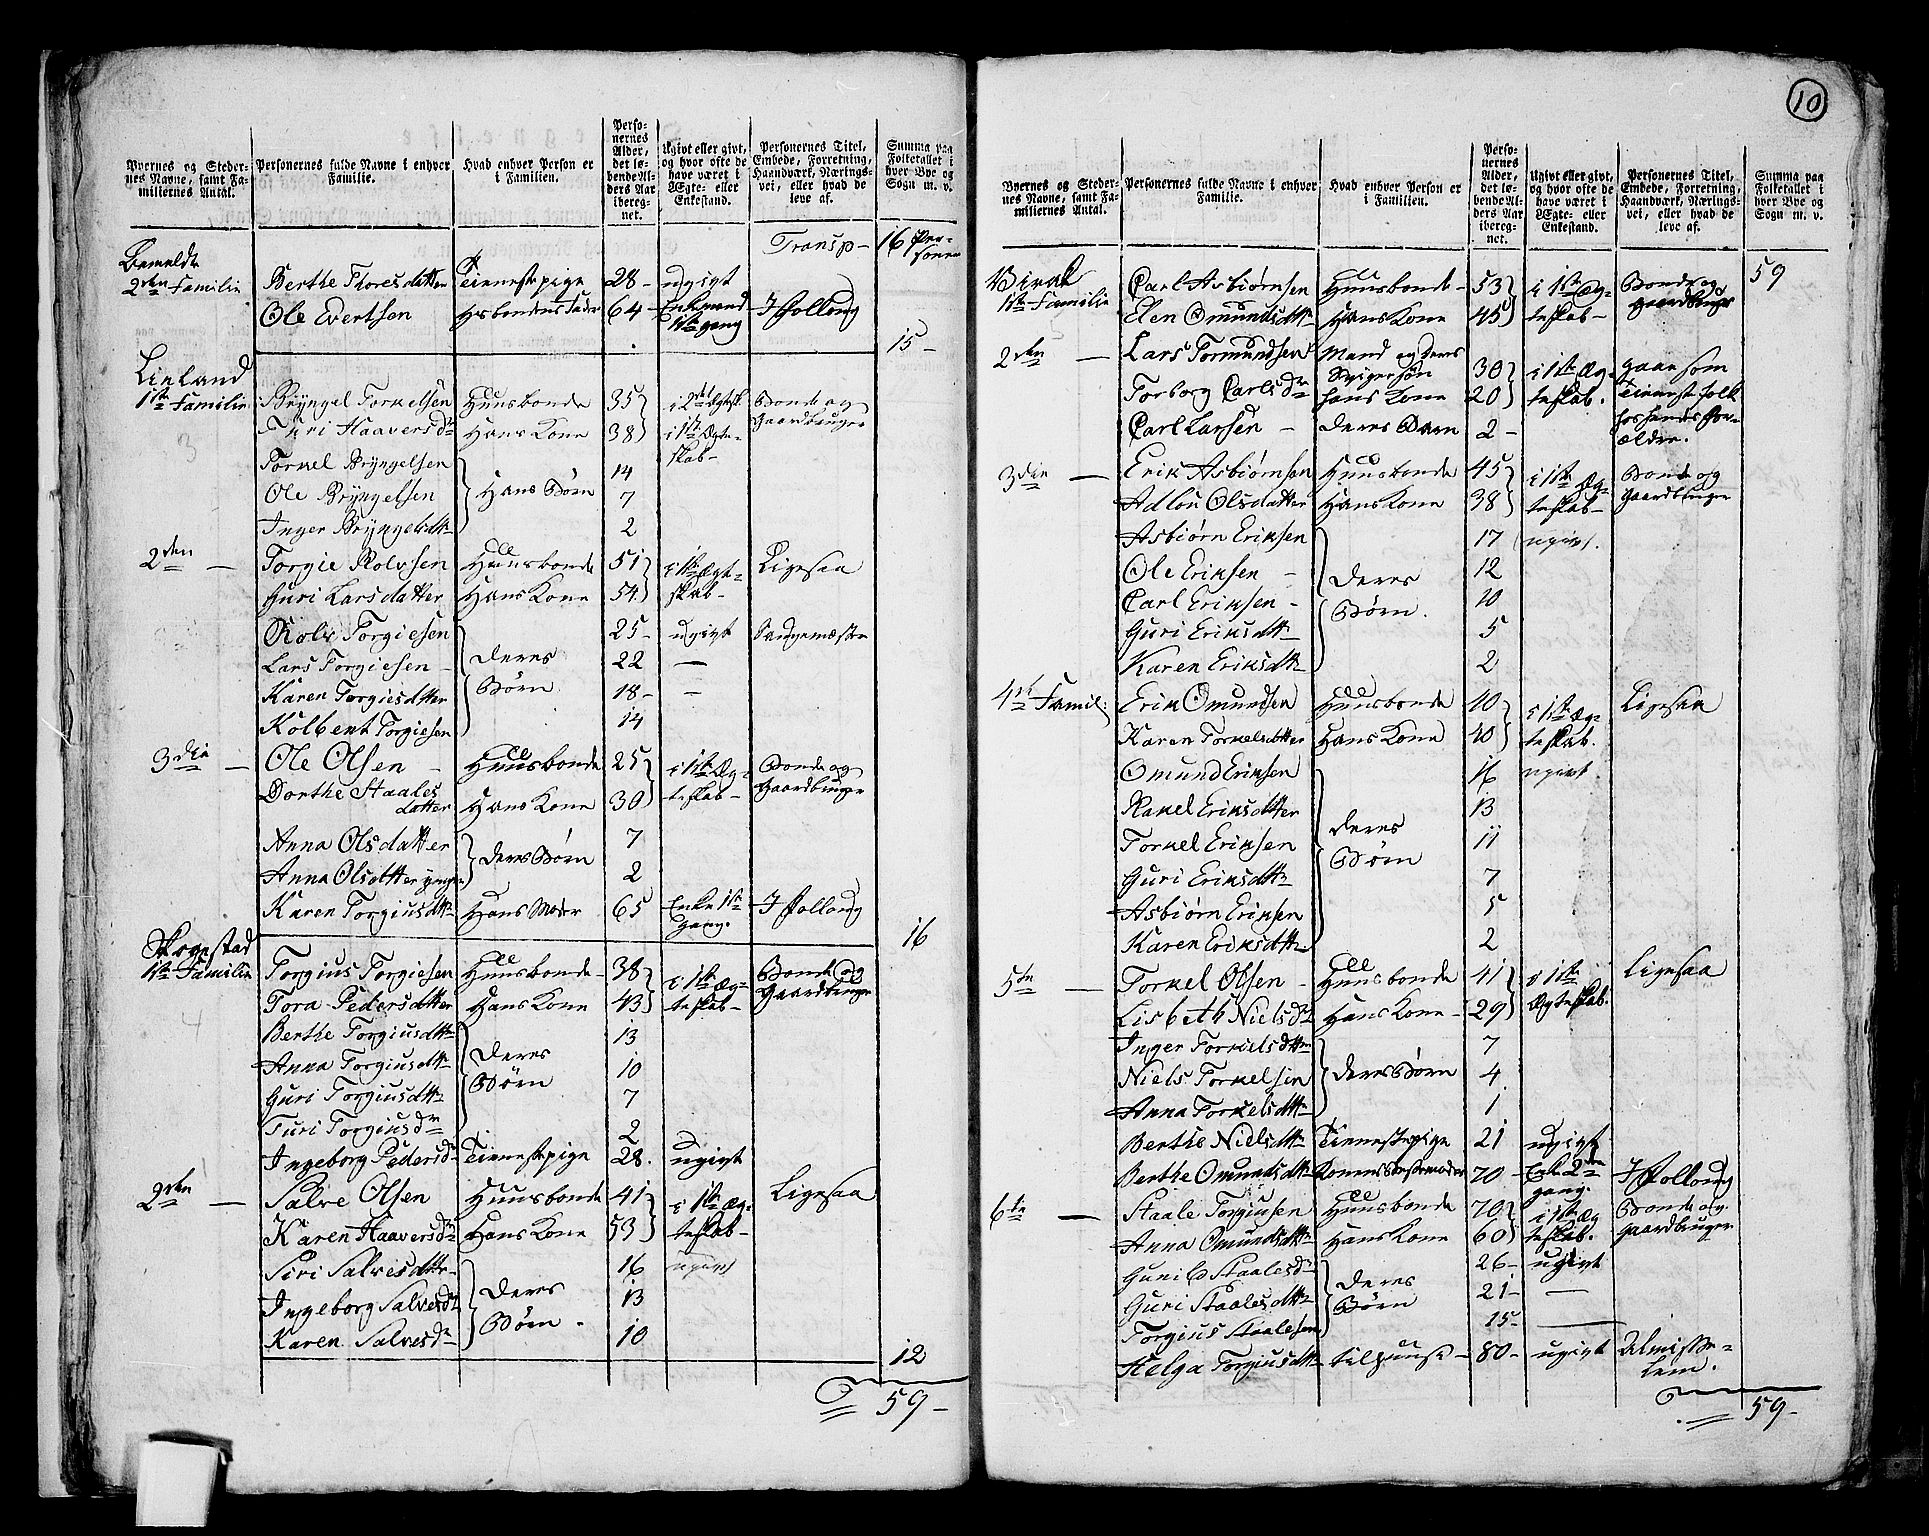 Byernes og Stedernes Navne, samt Familiernes Antal. | Personernes fulde Navne i enhver Familie. | Hvad enhver Person er i Familien. | Personernes Alder, det løbende Alders Aar iberegnet. | Ugivt eller givt, og hvor ofte de have været i Ægte- eller Enkestand. | Personernes Titel, Embede, Forretning, Haandværk, Næringsvei, eller hvad de leve af. | Summa paa Folketallet i hver Bye og Sogn m. v.
Transp- 16 Personer
Bemeldte
2den Familie Berthe Thoresdatter Tienestepige 28- ugivt
Ole Evertsen Hsbondens Fader 64- Enkemand 1ste gang Jfollong
15-
Linland
1ste Familie Bryngel Torkelsen Huusbonde 35 i 2det Ægtesk. Bonde og Gaardbruger
3
Guri Haaversdr Hans Kone 38 i 1ste Ægteskab-
Torkel Bryngelsen 14
Ole Bryngelsen Hans Børn 7
Inger Bryngelsdtr 2
2den - Torgie Rolvsen Huusbonde 51 i 1ste Ægteskab- Ligesaa
Guri Larsdatter Hans Kone 54
Rolv Torgiesen 25- ugivt
Lars Torgiesen - Deres 22 -
Karen Torgiesdatter Børn 18- -
Kolbent Torgiesen 14
3die - Ole Olsen - Huusbonde 25 i 1ste Ægteskab- Bonde og Gaardbruger
Dorthe Staalesdatter Hans Kone 30
Anna Olsdatter 7
Deres Børn
Anna Olsdtter yngre 2
Karen Torgiusdtr Hans Moder 65 Enke 1ste Gang. Jfollong
16
Skogestad
1ste Familie Torgius Torgiesen Huusbonde- 38 i 1ste Ægteskab- Bonde og Gaardbruger
Tora Pedersdatter Hans Kone 43
4
Berthe Torgiusdtr 13
Anna Torgiusdtr Deres 10
Guri Torgiusdtr Børn 7
Turi Torgiusdr 2
Ingeborg Pedersdr Tienestepige 28. ugivt
2den - Salve Olsen Huusbonde 41 i 1ste Ægteskab- Ligesaa
Karen Haaversdr Hans Kone 53
Siri Salvesdtr- 16 ugivt
Ingeborg Salvesdr Deres 13
Karen Salvesdr Børn. 10
12
59-
10
Byernes og Stedernes Navne, samt Familiernes Antal. | Personernes fulde Navne i enhver Familie. | Hvad enhver Person er i Familien. | Personernes Alder, det løbende Alders Aar iberegnet. | Ugivt eller givt, og hvor ofte de have været i Ægte- eller Enkestand. | Personernes Titel, Embede, Forretning, Haandværk, Næringsvei, eller hvad de leve af. | Summa paa Folketallet i hver Bye og Sogn m. v.
Birak
1ste Familie Carl Asbiørnsen Huusbonde- 53 i 1ste Ægteskab- Bonde og gaardbruger 59
Elen Omundsdtr Hans Kone 45
2den - Lars Tormundsen Mand og Deres Svigersøn 30 i 1ste Ægteskab. gaar som Tienestefolk hos hendes Forældre.
Torborg Carlsdr hans Kone 20
Carl Larsen - Deres Barn 2-
3die - Erik Asbiørnsen Huusbonde 45 i 1ste Ægteskab- Bonde og gaardbruger
Adlou Olsdatter Hans Kone 38
Asbiørn Eriksen 17 ugivt.
Ole Eriksen - Deres 12
Carl Eriksen - Børn. 10
Guri Eriksdtr 5
Karen Eriksdtr 2
4de Famil: Erik Omundsen Huusbonde 40 i 1ste Ægteskab. Ligesaa
Karen Torkelsdatter Hans Kone 40
Omund Eriksen 16 ugivt
Rakel Eriksdtter 13
Torkel Eriksen Deres 11
Guri Eriksdtr Børn 7
Asbiørn Eriksen 5
Karen Eriksdtr 2
5te - Torkel Olsen - Huusbonde 41 i 1ste Ægteskab. Ligesaa
Lisbeth Nielsdr Hans Kone- 29
Inger Torkelsdtr 7
Niels Torkelsen Deres Børn 4
Anna Torkelsdtr 1
Berthe Nielsdtr Tienestepige 21 ugivt
Berthe Omundsdtr 70 Enke 2den gang. Jfollong
6te - Staale Torgiusen Huusbonde 70 i 1ste Ægteskab. Bonde og gaardbruger
Anna Omundsdtr Hans Kone 60
Gunild Staalesdr 26- ugivt
Guri Staalesdtr Deres Børn 21- -
Torgius Staalesen 15- -
Helga Torgiusdtr tilhuuse- 80- ugivt Almisselem.
59-